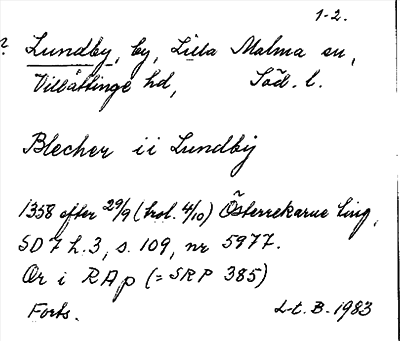 1-2.
? Lundby, by, Lilla Malma sn,
Villåttinge hd, Söd. l.
Blecher i i Lundby
1358 efter 29/9 (trol. 4/10) Österrekarne ting,
SD 7 h. 3, s. 109, nr 5977.
Or i RAp (= SRP 385)
Forts. L-t. B. 1983